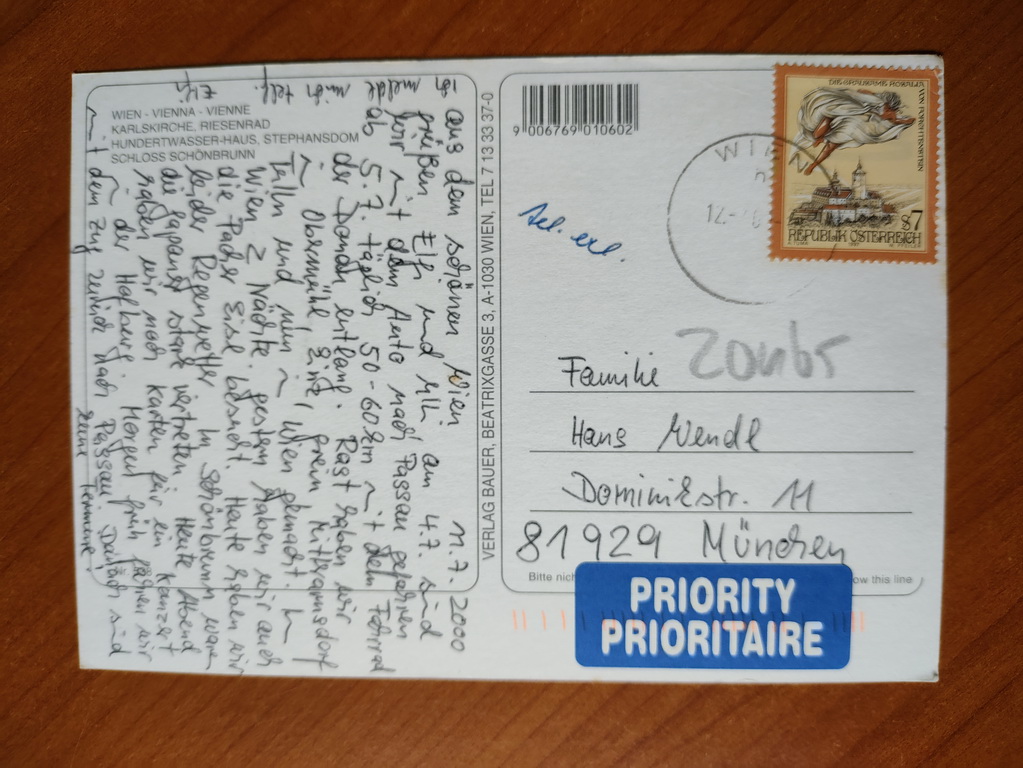 WIEN - VIENNA - VIENNE
KARLSKIRCHE, RIESENRAD
HUNDERTWASSER-HAUS, STEPHANSDOM
SCHLOSS SCHÖNBRUNN
11.7.2000
aus dem schönen Wien
grüßen Elfi und Uli, am 4.7. sind
wir mit dem Auto nach Passau gefahren
Ab 5.7. täglich 50-60km mit dem Fahrrad
der Donau entlang. Rast haben wir
in Obermühl, Linz, Grein, Mitterarnsdorf
Tulln und nun in Wien gemacht. In
Wien 2 Nächte, gestern haben wir auch
die Pader Gisl besucht. Heute haben wir
leider Regenwetter in Schönbrunn waren
die Japaner stark vertreten. Heute Abend
haben wir noch Karten für ein Konzert
in der Hofburg. Morgen früh fahren wir
mit dem Zug zurück nach Passau. Danach sind
keine Termine
ich melde mich telf.
Elfi
VERLAG BAUER, BEATRIXGASSE 3, A-1030 WIEN, TEL 7 13 33 37-0
9 006769 010602
WIEN
12.
DIE GRAUSAME ROSALIA
VON FORCHTENSTEIN
S7
REPUBLIK ÖSTERREICH
Tel. erl.
Familie
Hans Wendl
Dominikstr. 11
81929 München
Bitte nich ow this line
PRIORITY
PRIORITAIRE